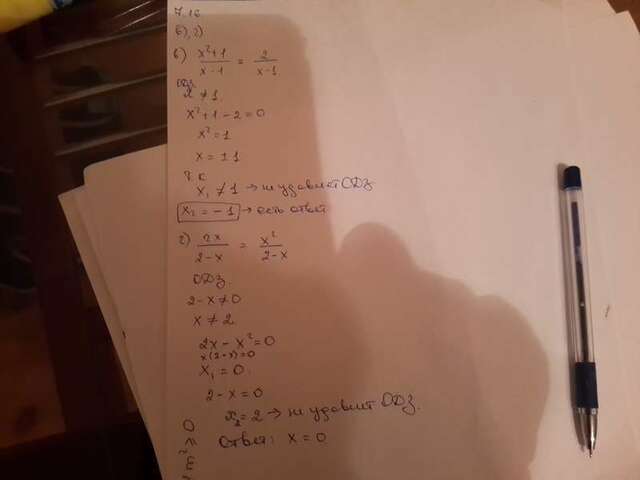 7.16
б), г)
б) x²+1 / x-1 = 2 / x-1
ОДЗ
x ≠ 1
x²+1-2=0
x²=1
x=±1
т.к
x₁ ≠ 1 → не удовлет ОДЗ
x₂ = -1 → есть ответ
г) 2x / 2-x = x² / 2-x
ОДЗ.
2-x≠0
x≠2
2x-x²=0
x(2-x)=0
x₁=0.
2-x=0
x₂=2 → не удовлет ОДЗ.
Ответ: x=0